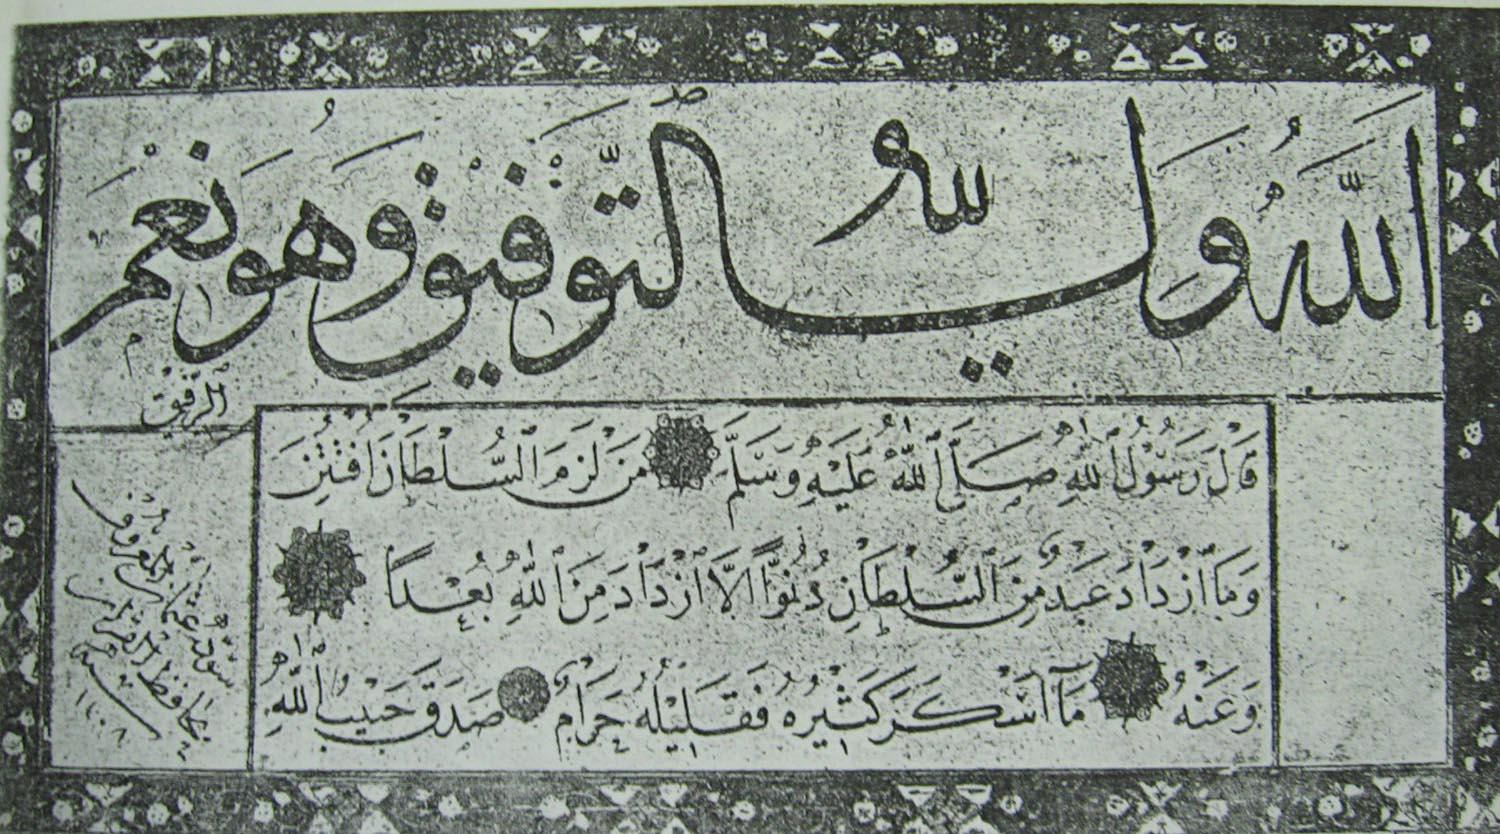 اللَّهُ وَلِيُّ التَّوْفِيقِ وَهُوَ نِعْمَ
الرَّفِيقُ
قَالَ رَسُولُ اللَّهِ صَلَّى اللَّهُ عَلَيْهِ وَسَلَّمَ مَنْ لَزِمَ السُّلْطَانَ افْتُتِنَ
وَمَا ازْدَادَ عَبْدٌ مِنَ السُّلْطَانِ دُنُوًّا إِلَّا ازْدَادَ مِنَ اللَّهِ بُعْدًا
وَعَنْهُ مَا أَسْكَرَ كَثِيرُهُ فَقَلِيلُهُ حَرَامٌ صَدَقَ حَبِيبُ اللَّهِ
عثمان المعروف
بحافظ القرآن